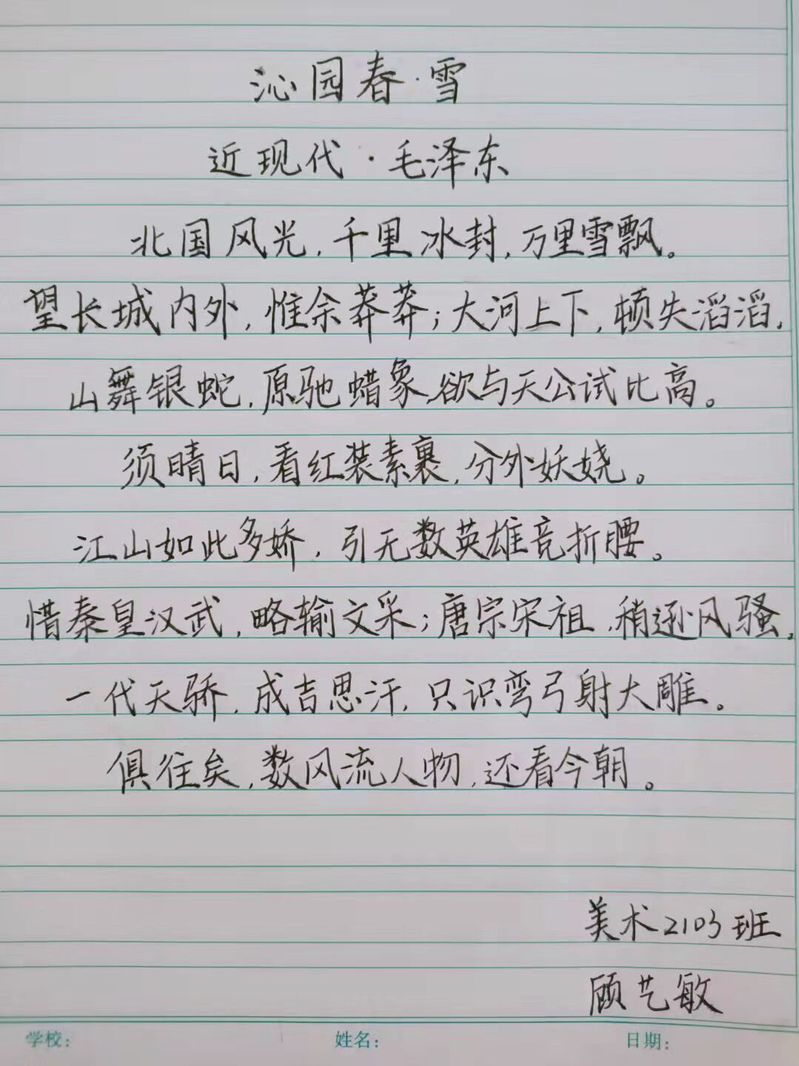 沁园春·雪
近现代·毛泽东
北国风光,千里冰封,万里雪飘。
望长城内外,惟余莽莽;大河上下,顿失滔滔,
山舞银蛇,原驰蜡象,欲与天公试比高。
须晴日,看红装素裹,分外妖娆。
江山如此多娇,引无数英雄竞折腰。
惜秦皇汉武,略输文采;唐宗宋祖,稍逊风骚,
一代天骄,成吉思汗,只识弯弓射大雕。
俱往矣,数风流人物,还看今朝。
美术2103班
顾艺敏
学校: 姓名: 日期: